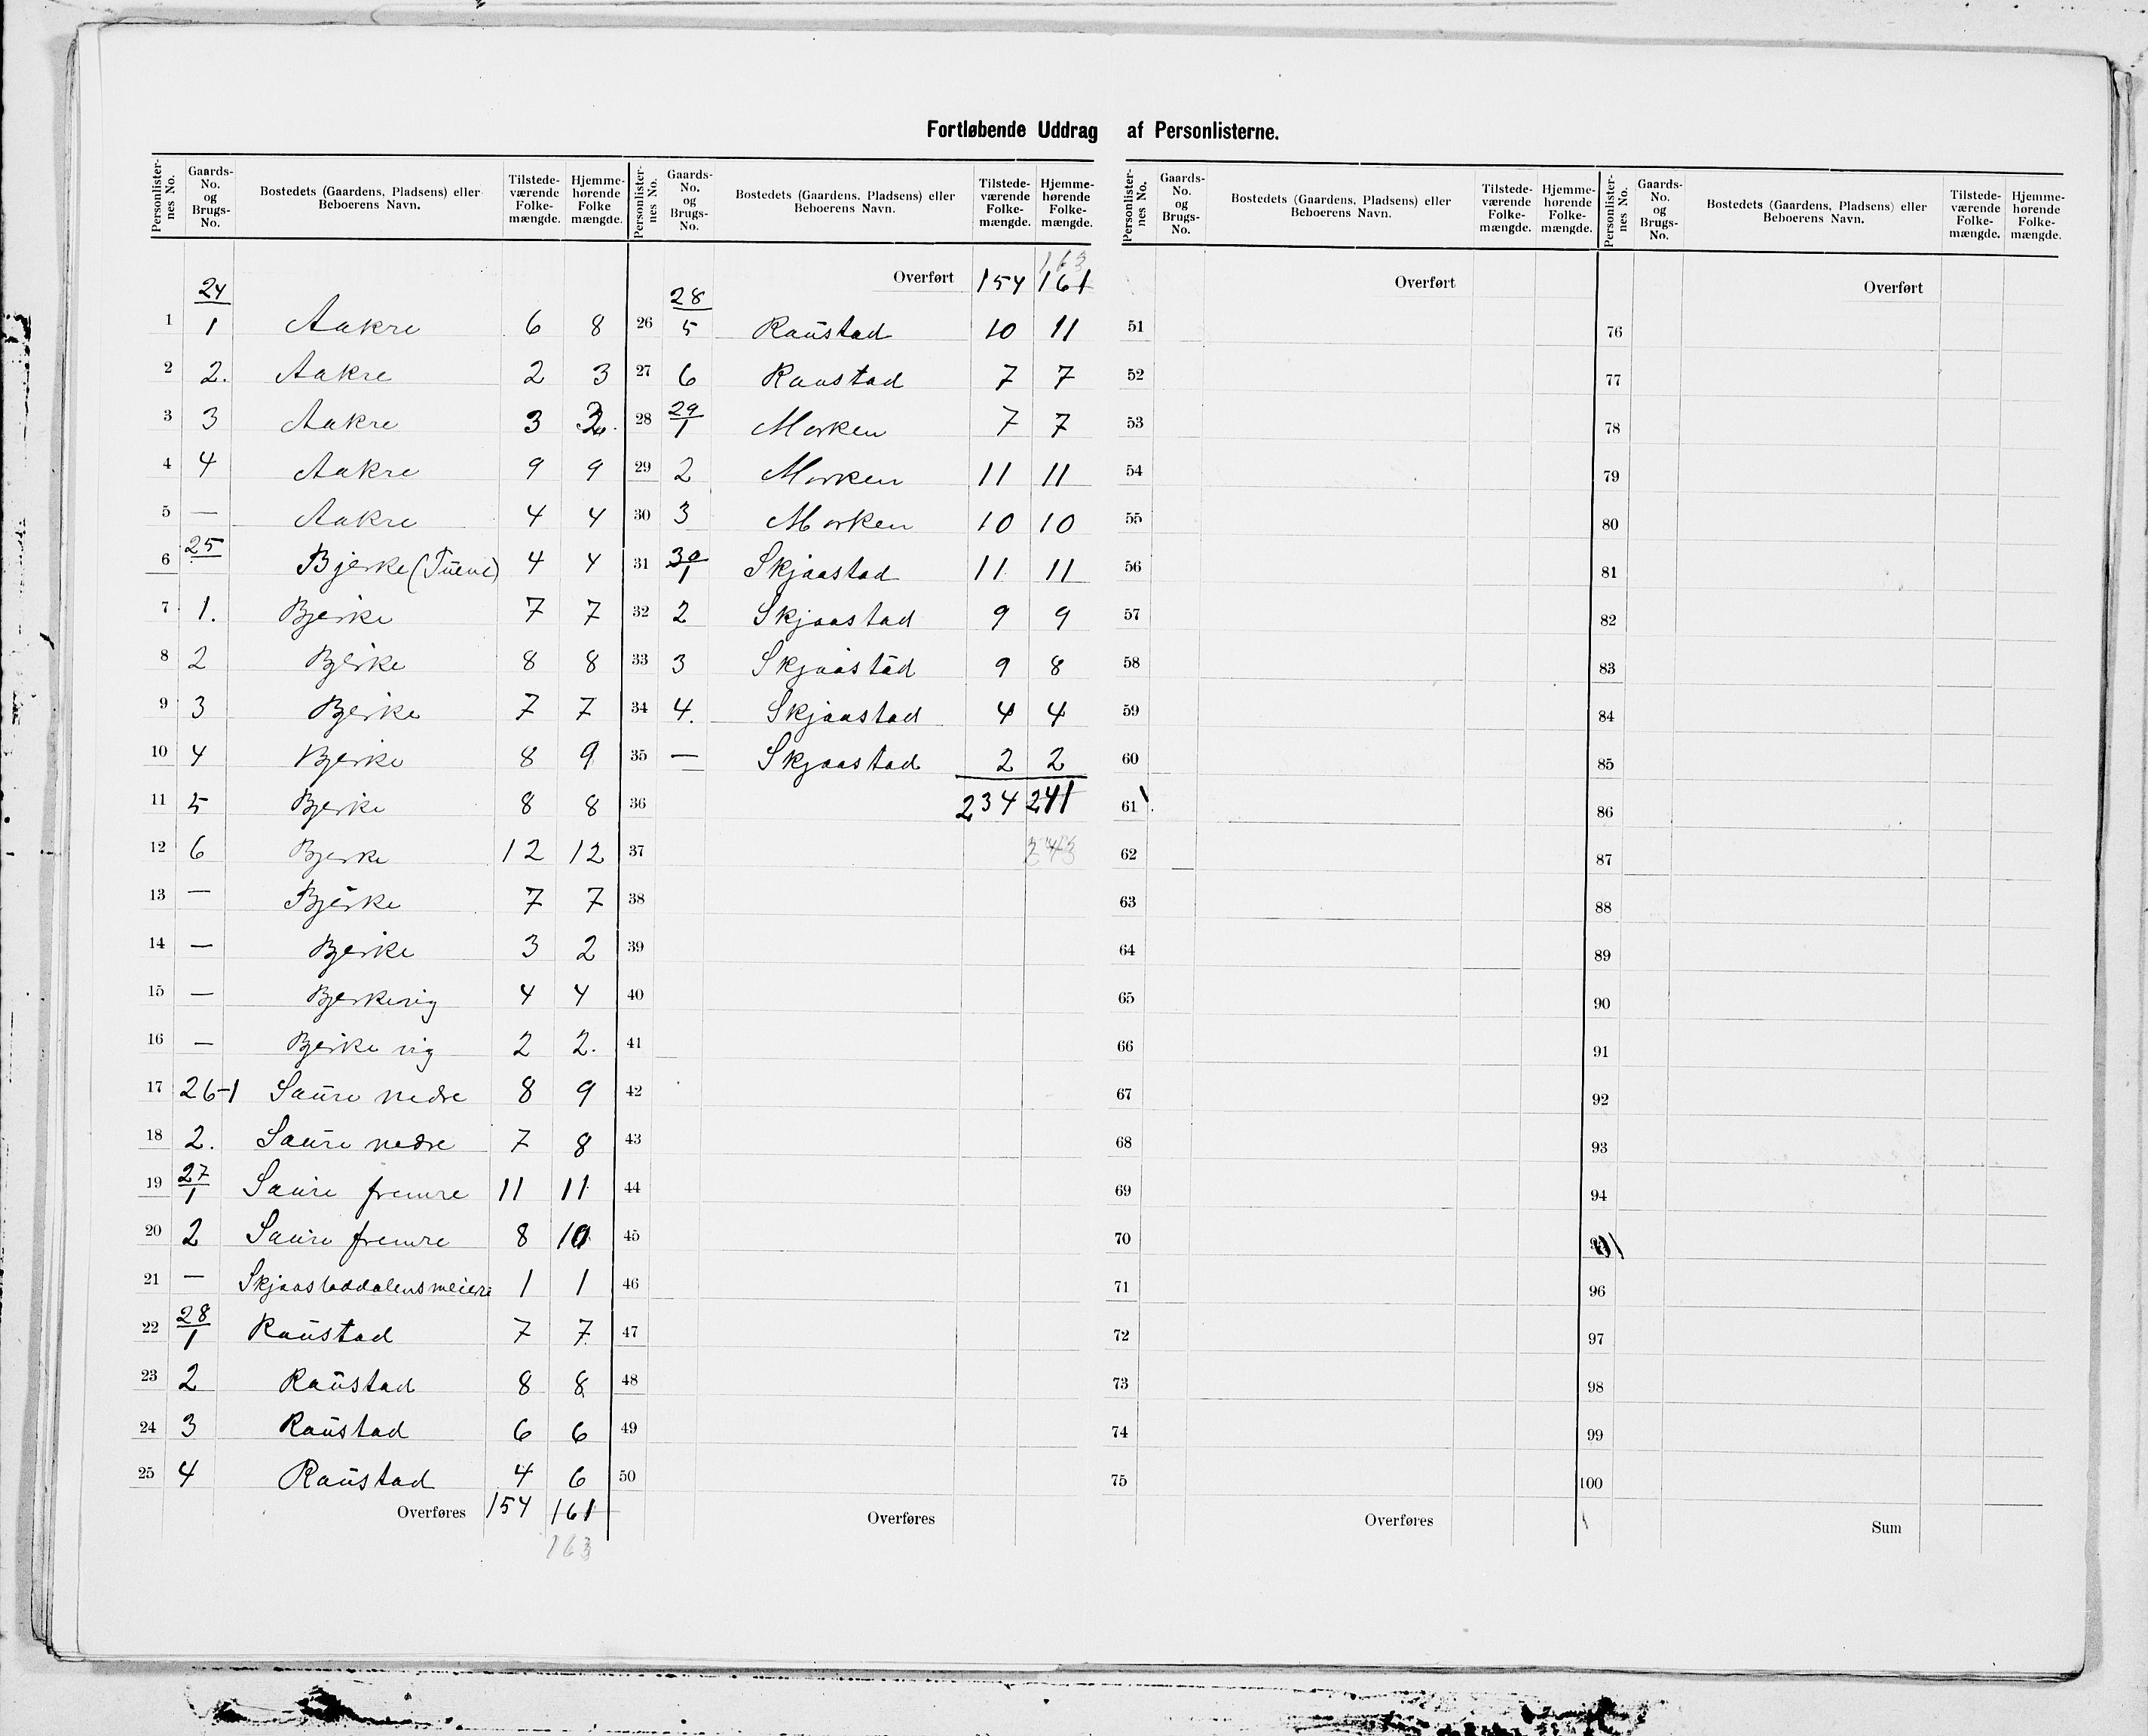 Fortløbende Uddrag af Personlisterne.
Personlister-nes No. Gaards-No. og Brugs-No. Bostedets (Gaardens, Pladsens) eller Beboerens Navn. Tilstede-værende Folke-mængde. Hjemme-hørende Folke mængde.
24
1 1 Aakre 6 8
2 2. Aakre 2 3
3 3 Aakre 3
4 4 Aakre 9 9
5 — Aakre 4 4
25
6 Bjerke 4 4
7 1. Bjerke 7 7
8 2 Bjerke 8 8
9 3 Bjerke 7 7
10 4 Bjerke 8 9
11 5 Bjerke 8 8
12 6 Bjerke 12 12
13 — Bjerke 7 7
14 — Bjerke 3 2
15 — Bjerkevig 4 4
16 — Bjerke vig 2 2.
17 26-1 Saure nedre 8 9
18 2. Saure nedre 7 8
19 27/1 Saure fremre 11 11
20 2 Saure fremre 8 10
21 — Skjaastaddalens meieri 1 1
22 28/1 Raustad 7 7
23 2 Raustad 8 8
24 3 Raustad 6 6
25 4 Raustad 4 6
Overføres 154 161
163
Personlister-nes No. Gaards-No. og Brugs-No. Bostedets (Gaardens, Pladsens) eller Beboerens Navn. Tilstede-værende Folke-mængde. Hjemme-hørende Folke-mængde.
163
Overført 154 161
28
26 5 Raustad 10 11
27 6 Raustad 7 7
28 29/1 Morken 7 7
29 2 Morken 11 11
30 3 Morken 10 10
31 30/1 Skjaastad 11 11
32 2 Skjaastad 9 9
33 3 Skjaastad 9 8
34 4. Skjaastad 4 4
35 — Skjaastad 2 2
36 234 241
37 243
38
39
40
41
42
43
44
45
46
47
48
49
50
Overføres
Personlister-nes No. Gaards-No. og Brugs-No. Bostedets (Gaardens, Pladsens) eller Beboerens Navn. Tilstede-værende Folke-mængde. Hjemme-hørende Folke-mængde.
Overført
51
52
53
54
55
56
57
58
59
60
61
62
63
64
65
66
67
68
69
70
71
72
73
74
75
Overføres
Personlister-nes No. Gaards-No. og Brugs-No. Bostedets (Gaardens, Pladsens) eller Beboerens Navn. Tilstede-værende Folke-mængde. Hjemme-hørende Folke-mængde.
Overført
76
77
78
79
80
81
82
83
84
85
86
87
88
89
90
91
92
93
94
96
97
98
99
100
Sum